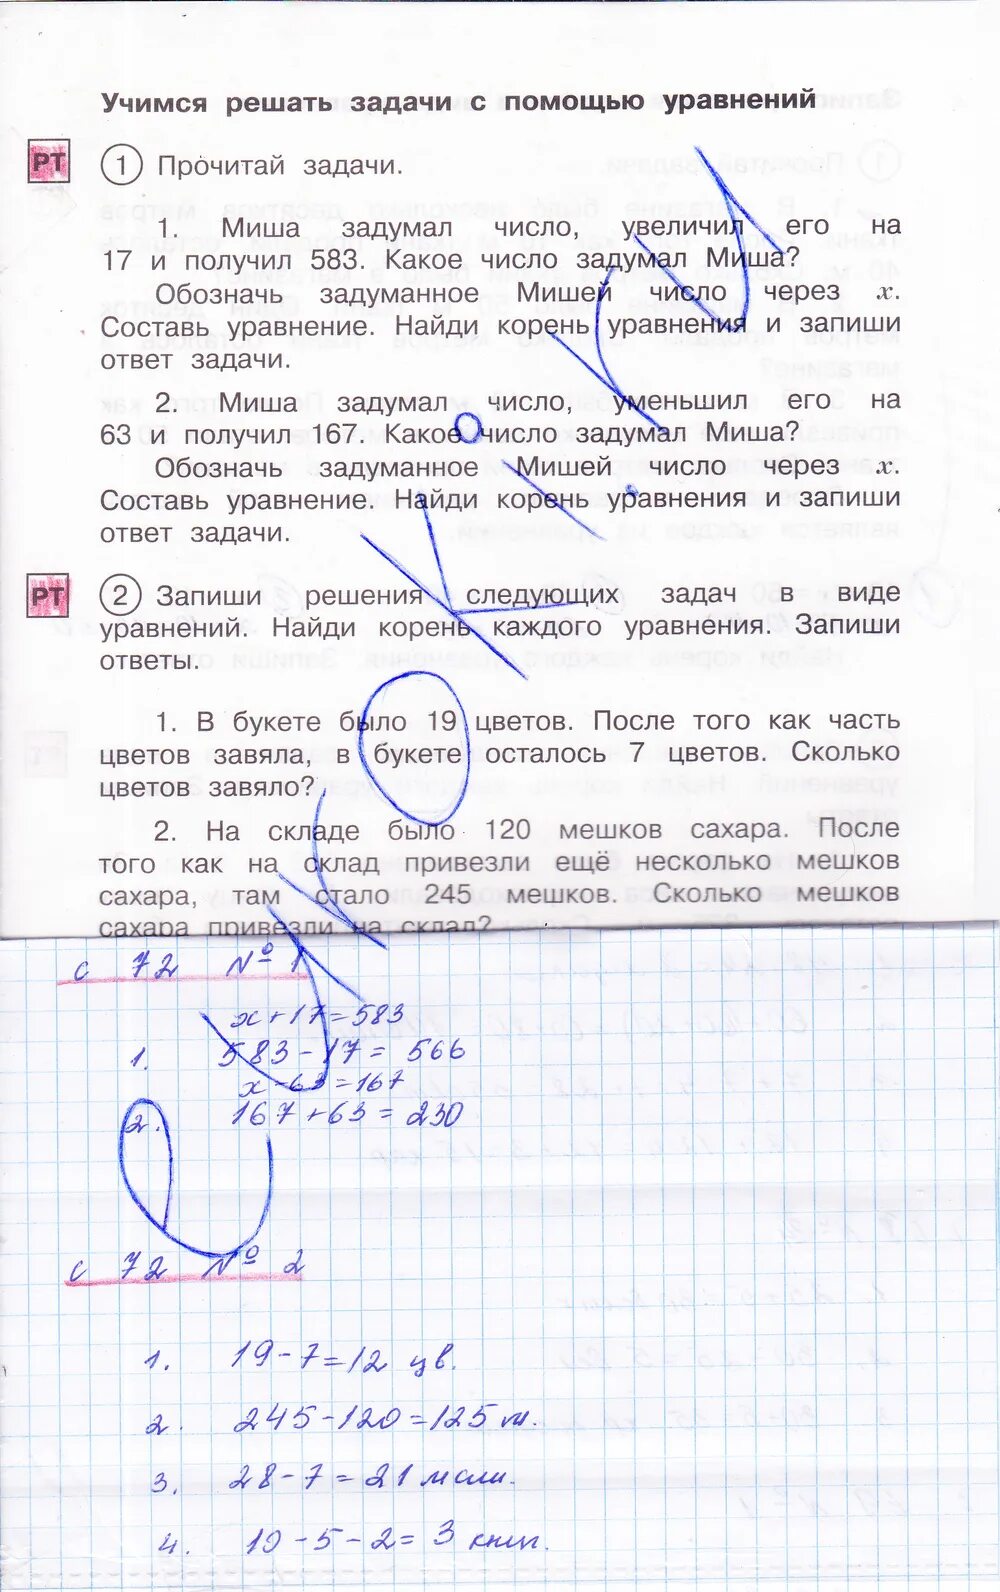 Учимся решать задачи с помощью уравнений
РТ 1 Прочитай задачи.
1. Миша задумал число, увеличил его на
17 и получил 583. Какое число задумал Миша?
Обозначь задуманное Мишей число через x.
Составь уравнение. Найди корень уравнения и запиши
ответ задачи.
2. Миша задумал число, уменьшил его на
63 и получил 167. Какое число задумал Миша?
Обозначь задуманное Мишей число через x.
Составь уравнение. Найди корень уравнения и запиши
ответ задачи.
РТ 2 Запиши решения следующих задач в виде
уравнений. Найди корень каждого уравнения. Запиши
ответы.
1. В букете было 19 цветов. После того как часть
цветов завяла, в букете осталось 7 цветов. Сколько
цветов завяло?
2. На складе было 120 мешков сахара. После
того как на склад привезли ещё несколько мешков
сахара, там стало 245 мешков. Сколько мешков
сахара привезли на склад?
с 72 № 1
x+17=583
1. 583-17= 566
x-63=167
2. 167+63=230
с 72 № 2
1. 19-7=12 цв.
2. 245-120=125 м.
3. 28-7=21
4. 10-5-2= 3 книг.